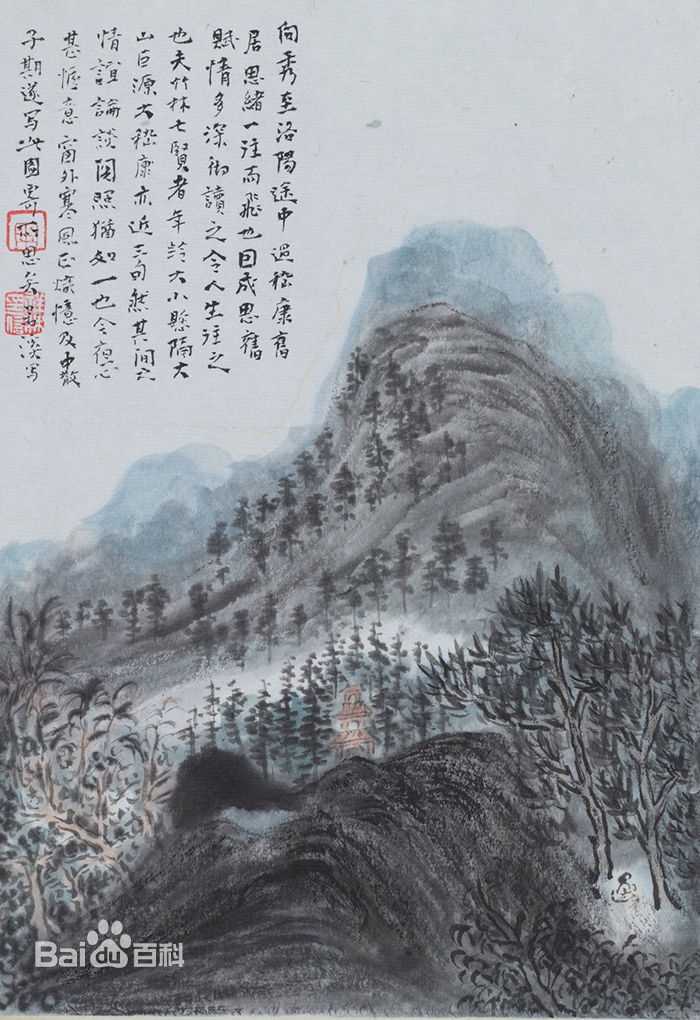 向秀至洛陽途中過嵇康舊
居思緒一注而飛也因成思舊
賦情多深衍讀之令人生注之
也夫竹林七賢者年齡大小懸隔大
山巨源大嵇康亦近三旬然其间
情誼論談関照猶如一也今夜心
甚惟意窗外寒風正熾憶及中散
子期遂写此图寄思矣淡写
Bai百科